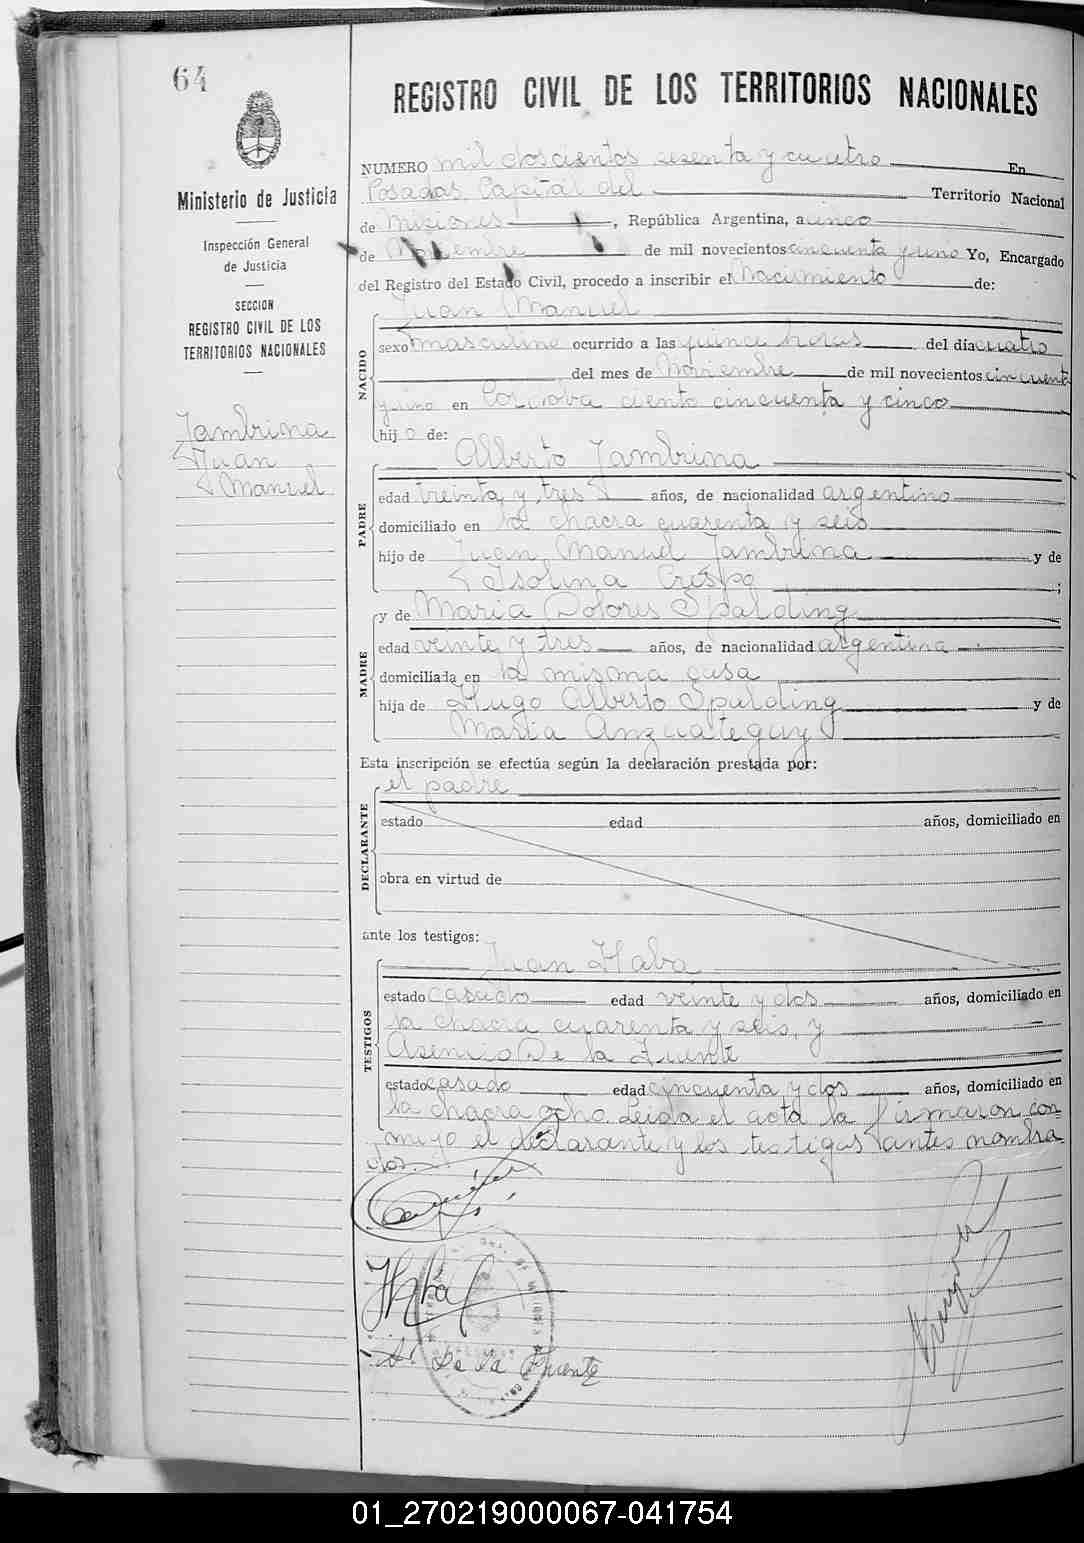 64
REGISTRO CIVIL DE LOS TERRITORIOS NACIONALES
Ministerio de Justicia
Inspección General
de Justicia
SECCION
REGISTRO CIVIL DE LOS
TERRITORIOS NACIONALES
Jambrina
Juan
Manuel
NUMERO mil doscientos sesenta y cuatro En
Posadas, Capital del Territorio Nacional
de Misiones, República Argentina, a cinco
de Noviembre de mil novecientos cincuenta y uno Yo, Encargado
del Registro del Estado Civil, procedo a inscribir el Nacimiento de:
NACIDO
Juan Manuel
sexo masculino ocurrido a las quince horas del día cuatro
del mes de Noviembre de mil novecientos cincuenta
y uno en Cordoba ciento cincuenta y cinco
hijo de:
PADRE
Alberto Jambrina
edad treinta y tres años, de nacionalidad argentino
domiciliado en la chacra cuarenta y seis
hijo de Juan Manuel Jambrina y de
Isolina Crespo ;
MADRE
y de Maria Dolores Spalding
edad veinte y tres años, de nacionalidad argentina
domiciliada en la misma casa
hija de Hugo Alberto Spalding y de
Maria Anzuateguy
Esta inscripción se efectúa según la declaración prestada por:
DECLARANTE
el padre
estado edad años, domiciliado en
obra en virtud de
ante los testigos:
TESTIGOS
Juan Haba
estado casado edad veinte y dos años, domiciliado en
la chacra cuarenta y seis, y
Asencio De la Fuente
estado casado edad cincuenta y dos años, domiciliado en
la chacra ocho. Leida el acta la firmaron con
migo el declarante y los testigos antes nombra
dos.
JHaba
A. De la Fuente
01_270219000067-041754